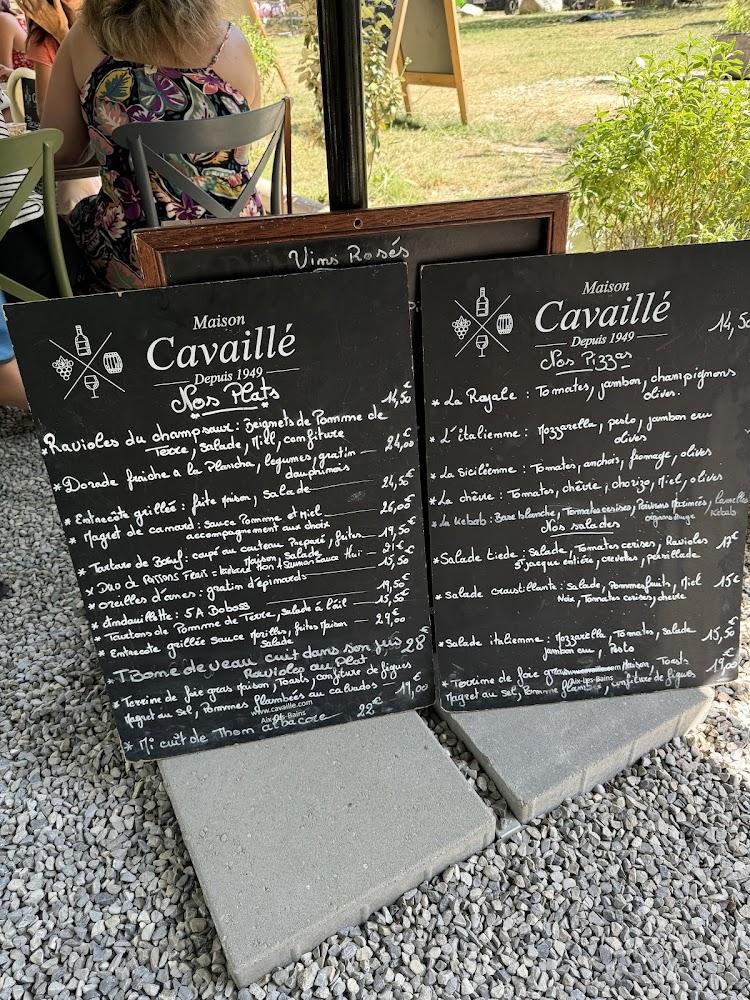 Vins Rosés
Maison
Cavaillé
Depuis 1949
Nos Plats
14,50
* Ravioles du champsaur : Beignets de Pomme de
Terre, Salade, Miel, confiture
24,00
* Dorade fraîche a la Plancha, légumes, gratin
dauphinois
* Entrecôte grillée : frite Maison, Salade 24,50
* Magret de canard : Sauce Pomme et Miel 26,00
accompagnement aux choix
* Tartare de Bœuf : coupé au couteau Préparé, frites 19,50
Maison, Salade
x Duo de Poissons Frais : Sauce Thaï 21€
* oreilles d'anes : gratin d'épinards 15,50
* Andouillette : 5A Bobosse 19,50
* Tourtons de Pomme de Terre, salade à l'ail 15,50€
* Entrecote grillée Sauce Morilles, frites Maison 29,00€
Salade
* TBone de veau cuit dans son jus 28€
Ravioles au Plat
* Terrine de foie gras Maison, Toasts, confiture de figues
Magret au Sel, Pommes flambées au calvados 19,00€
www.cavaille.com
Aix-Les-Bains
* Mi cuit de Thon albacore 22€
Maison
Cavaillé
Depuis 1949
Nos Pizzas
14,50
* La Royale : Tomates, jambon, champignons
olives.
* L'italienne : Mozzarella, pesto, jambon cru
olives
* La Sicilienne : Tomates, anchois, fromage, olives
* La chèvre : Tomates, chèvre, chorizo, Miel, olives
* La Kebab : Base blanche, Tomates cerises, Poivrons Marinées, lamelles
oignons rouge Kebab
Nos salades
* Salade tiede : Salade, Tomates cerises, Ravioles 17€
St jacque entière, crevettes, persillade
* Salade croustillante : Salade, Pomme fruits, Miel 15€
Noix, Tomates cerises, chevre
* Salade italienne : Mozzarella, Tomates, salade 15,50€
jambon cru, Pesto
* Terrine de foie gras Maison, Toasts 19,00€
www.cavaille.com
Aix-Les-Bains
Magret au Sel, Pomme flambée, confiture de figues